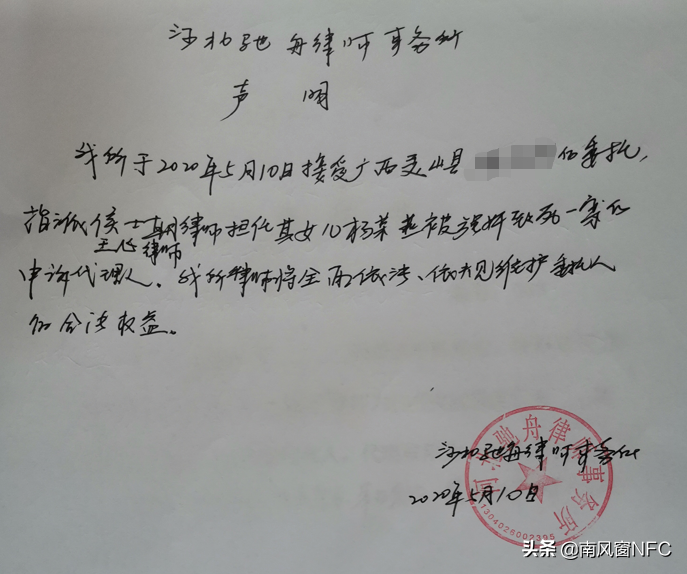 河北驰舟律师事务所
声 明
我所于2020年5月10日接受广西灵山县 的委托,
指派侯士朝律师担任其女儿杨某燕被强奸致死一案的
王飞律师
申诉代理人。我所律师将全面依法、依规维护委托人
的合法权益。
河北驰舟律师事务所
2020年5月10日
河北驰舟律师事务所
1304026002395
头条@南风窗NFC